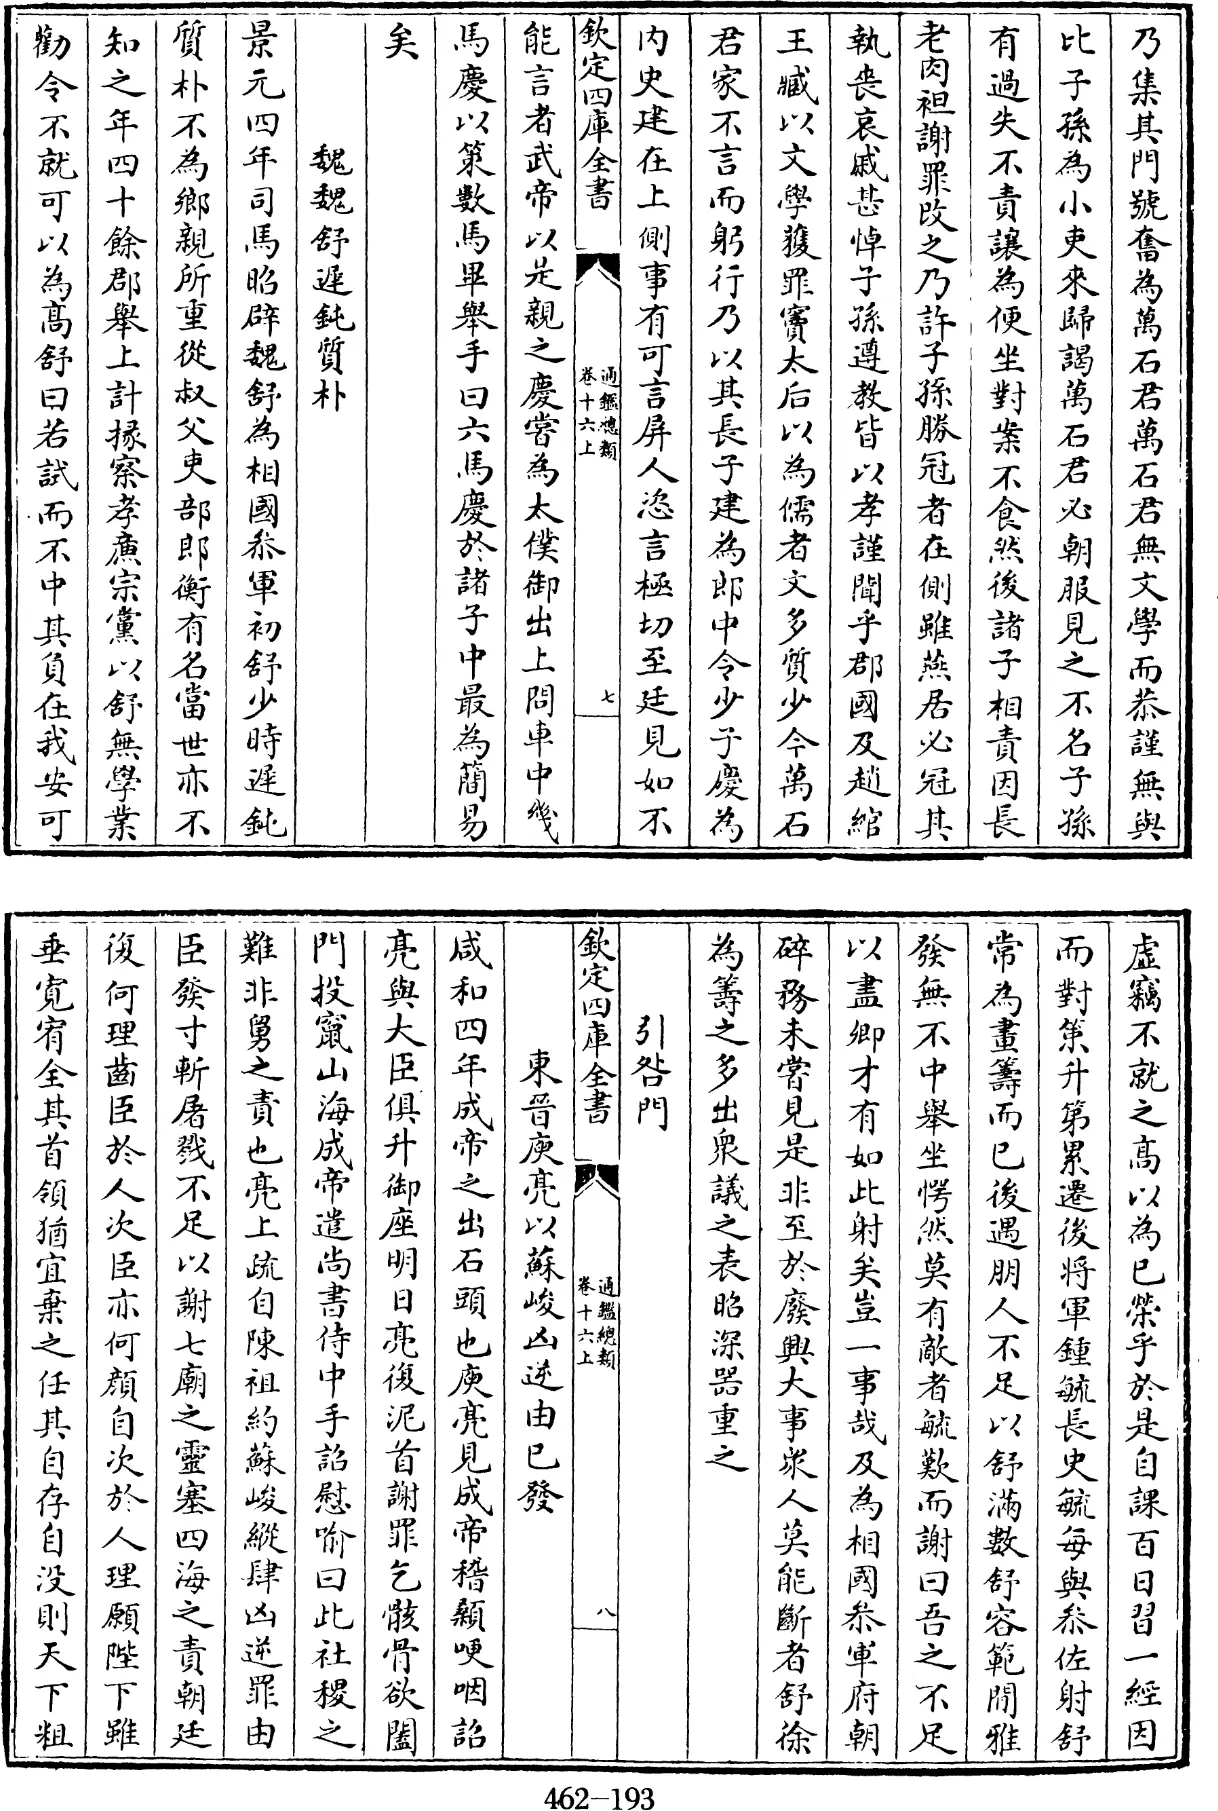 乃集其門號奮為萬石君萬石君無文學而恭謹無與
比子孫為小吏來歸謁萬石君必朝服見之不名子孫
有過失不責讓為便坐對案不食然後諸子相責因長
老肉袒謝罪改之乃許子孫勝冠者在側雖燕居必冠其
執喪哀戚甚悼子孫遵教皆以孝謹聞乎郡國及趙綰
王臧以文學獲罪竇太后以為儒者文多質少今萬石
君家不言而躬行乃以其長子建為郎中令少子慶為
内史建在上側事有可言屏人恣言極切至廷見如不
欽定四庫全書
通鑑總類
卷十六上
七
能言者武帝以是親之慶嘗為太僕御出上問車中幾
馬慶以策數馬畢舉手曰六馬慶於諸子中最為簡易
矣
魏魏舒遲鈍質朴
景元四年司馬昭辟魏舒為相國叅軍初舒少時遲鈍
質朴不為鄉親所重從叔父吏部郎衡有名當世亦不
知之年四十餘郡舉上計掾察孝亷宗黨以舒無學業
勸令不就可以為髙舒曰若試而不中其負在我安可
虛竊不就之髙以為已榮乎於是自課百日習一經因
而對策升第累遷後將軍鍾毓長史毓每與叅佐射舒
常為畫籌而已後遇朋人不足以舒滿數舒容範閒雅
發無不中舉坐愕然莫有敵者毓歎而謝曰吾之不足
以盡卿才有如此射矣豈一事哉及為相國叅軍府朝
碎務未嘗見是非至於廢興大事衆人莫能斷者舒徐
為籌之多出衆議之表昭深器重之
引咎門
欽定四庫全書
通鑑總類
卷十六上
八
東晉庾亮以蘇峻凶逆由已發
咸和四年成帝之出石頭也庾亮見成帝稽顙哽咽詔
亮與大臣俱升御座明日亮復泥首謝罪乞骸骨欲闔
門投竄山海成帝遣尚書侍中手詔慰喻曰此社稷之
難非舅之責也亮上疏自陳祖約蘇峻縱肆凶逆罪由
臣發寸斬屠戮不足以謝七廟之靈塞四海之責朝廷
復何理齒臣於人次臣亦何顔自次於人理願陛下雖
垂寛宥全其首領猶宜棄之任其自存自没則天下粗
462-193